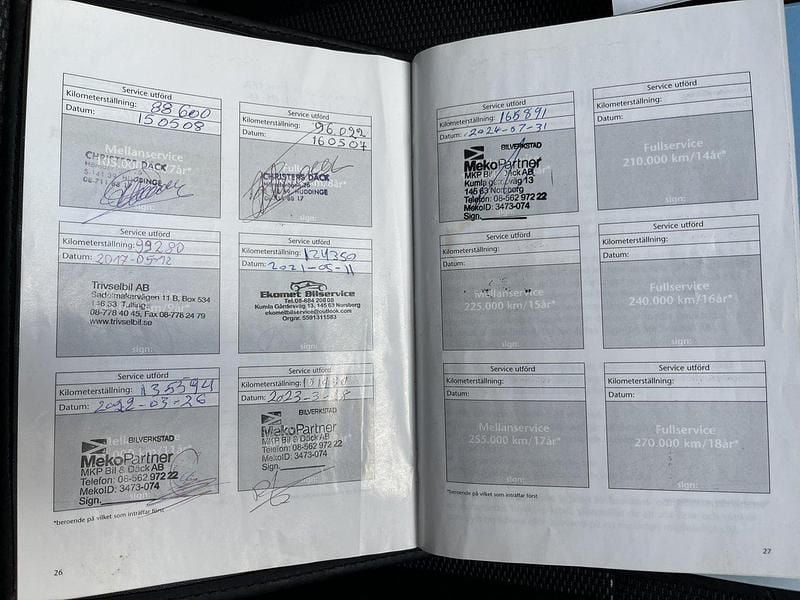 Service utförd
Kilometerställning: 88 600
Datum: 150508
Mellanservice
CHRISTERS DÄCK
HUDDINGE
sign:
Service utförd
Kilometerställning: 96.092
Datum: 160504
CHRISTERS DÄCK
HUDDINGE
sign:
Service utförd
Kilometerställning: 99280
Datum: 2017-05-12
Trivselbil AB
Sadelmakarvägen 11 B, Box 534
146 33 Tullinge
08-778 40 45, Fax 08-778 24 79
www.trivselbil.se
sign:
Service utförd
Kilometerställning: 124350
Datum: 2021-05-11
Ekomet Bilservice
Tel.08-684 208 08
Kumla Gårdesväg 13, 145 63 Norsborg
ekometbilservice@outlook.com
Orgnr. 5591311583
sign:
Service utförd
Kilometerställning: 135594
Datum: 2022-03-26
BILVERKSTAD
MekoPartner
MKP Bil & Däck AB
Telefon: 08-562 972 22
MekoID: 3473-074
Sign.
Service utförd
Kilometerställning:
Datum: 2023-3-
BILVERKSTAD
MekoPartner
MKP Bil & Däck AB
Telefon: 08-562 972 22
MekoID: 3473-074
Sign.
*beroende på vilket som inträffar först
26
Service utförd
Kilometerställning: 165891
Datum: 2024-07-31
BILVERKSTAD
MekoPartner
MKP Bil & Däck AB
Kumla gårdsväg 13
145 63 Norsborg
Telefon: 08-562 972 22
MekoID: 3473-074
Sign.
Service utförd
Kilometerställning:
Datum:
Fullservice
210.000 km/14år*
sign:
Service utförd
Kilometerställning:
Datum:
225.000 km/15år*
sign:
Service utförd
Kilometerställning:
Datum:
Fullservice
240.000 km/16år*
sign:
Service utförd
Kilometerställning:
Datum:
Mellanservice
255.000 km/17år*
sign:
Service utförd
Kilometerställning:
Datum:
Fullservice
270.000 km/18år*
sign:
*beroende på vilket som inträffar först
27